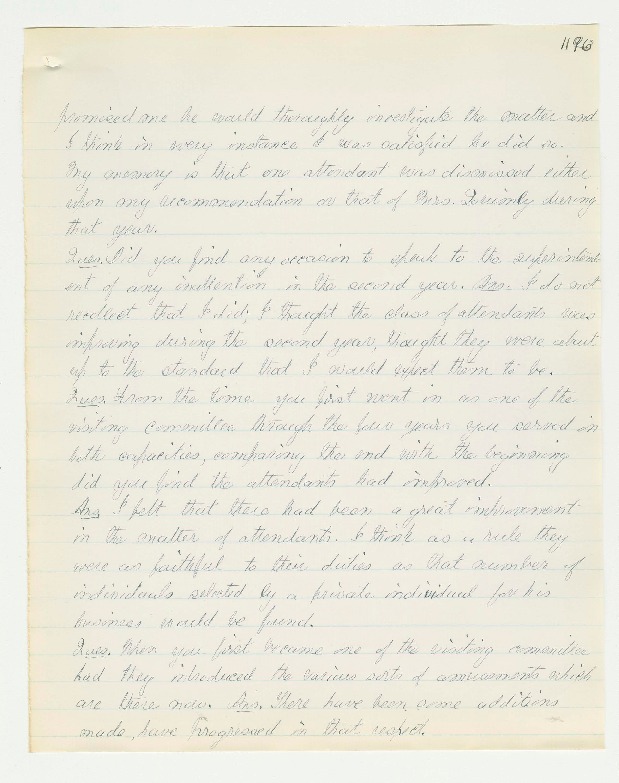 1196
promised me he would thoroughly investigate the matter and
I think in every instance I was satisfied he did so.
My memory is that one attendant was dismissed either
upon my recommendation or that of Mrs. during
that year.
Ques. Did you find any occasion to speak to the superintend
ent of any inattention in the second year. Ans. I do not
recollect that I did; I thought the class of attendants was
improving during the second year, thought they were about
up to the standard that I would expect them to be.
Ques. From the time you first went in as one of the
visiting committee through the four years you served in
both capacities, comparing the end with the beginning
did you find the attendants had improved.
Ans. I felt that there had been a great improvement
in the matter of attendants. I think as a rule they
were as faithful to their duties as that number of
individuals selected by a private individual for his
business would be found.
Ques. When you first became one of the visiting committee
had they introduced the various sorts of amusements which
are there now. Ans. There have been some additions
made, have progressed in that respect.